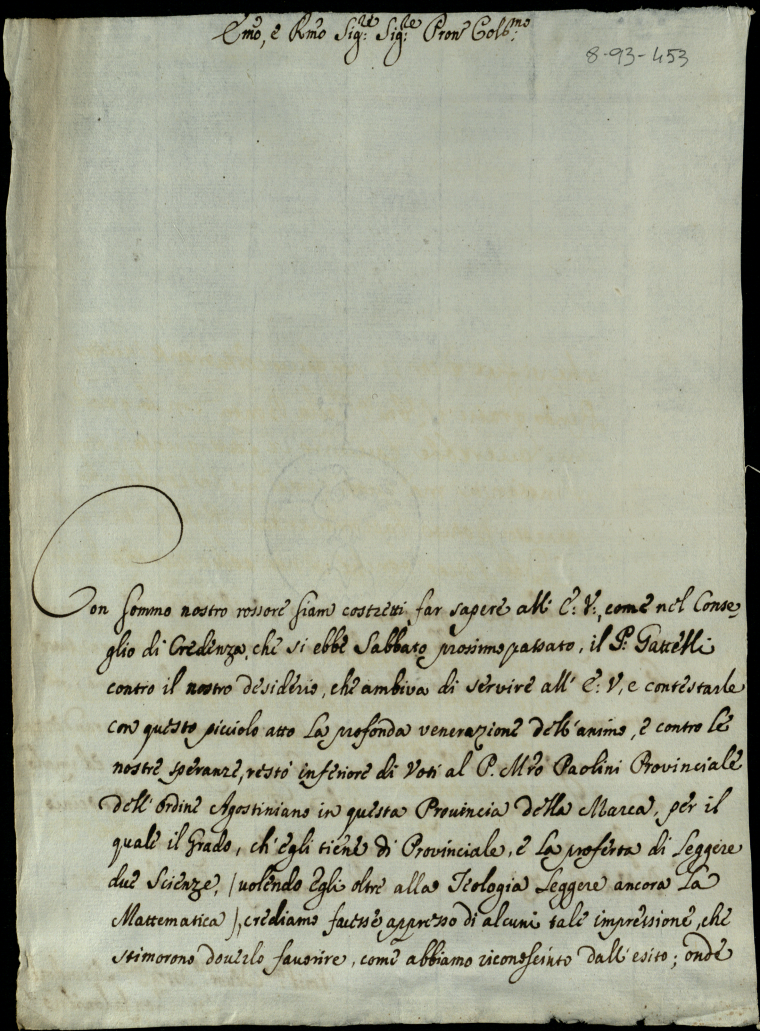 Em̃o, e Rm̃o Sig:re Sig:re Pron Col:mo
8-93-453
Con sommo nostro rossore siam costretti far sapere all' E: V:, come nel Conse,
glio di Credenza, che si ebbe Sabbato prossimo passato, il P:
contro il nostro desiderio, che ambiva di servire all' E: V, e contestarle
con questo picciolo atto La profonda venerazione dell'animo, e contro le
nostre speranze, restò inferiore di Voti al P. Mr̃o Paolini Provinciale
dell' ordine Agostiniano in questa Provincia della Marca, per il
quale il Grado, ch'egli tiene di Provinciale, e La proferta di Leggere
due Scienze, /volendo egli oltre alla Teologia Leggere ancora La
Mattematica/, crediamo facesse appresso di alcuni tale impressione, che
stimorono doverlo favorire, come abbiamo riconosciuto dall' esito; onde